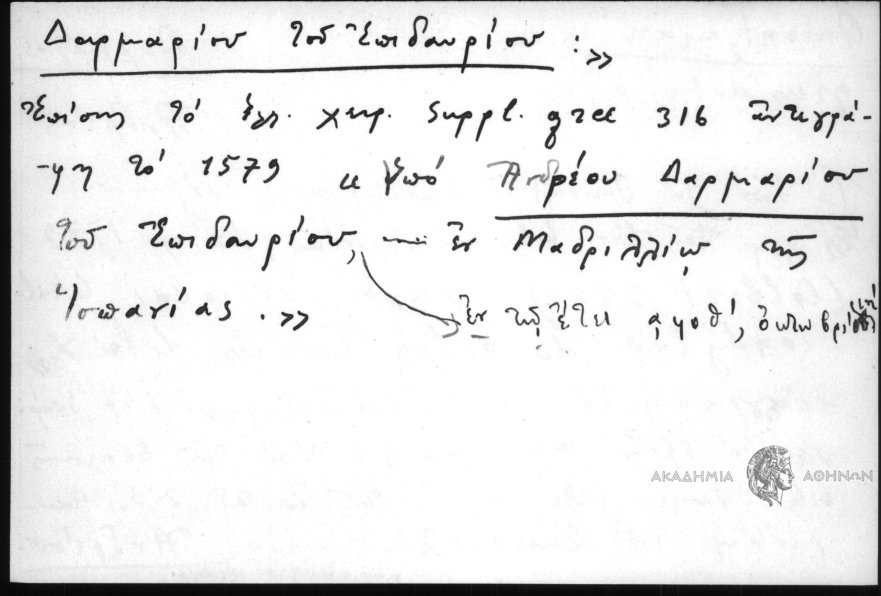 Δαρμαρίου τοῦ Ἐπιδαυρίου :»
Ἐπίσης τό ἑλλ. χειρ. Suppl. grec 316 ἀντεγρά-
-φη τό 1579 ὑπό Ἀνδρέου Δαρμαρίου
τοῦ Ἐπιδαυρίου, ἐν Μαδριλλίῳ τῆς
Ἱσπανίας .»
ἐν τῷ ἔτει ͵αφοθʹ, ὀκτωβρί
ΑΚΑΔΗΜΙΑ ΑΘΗΝΩΝ